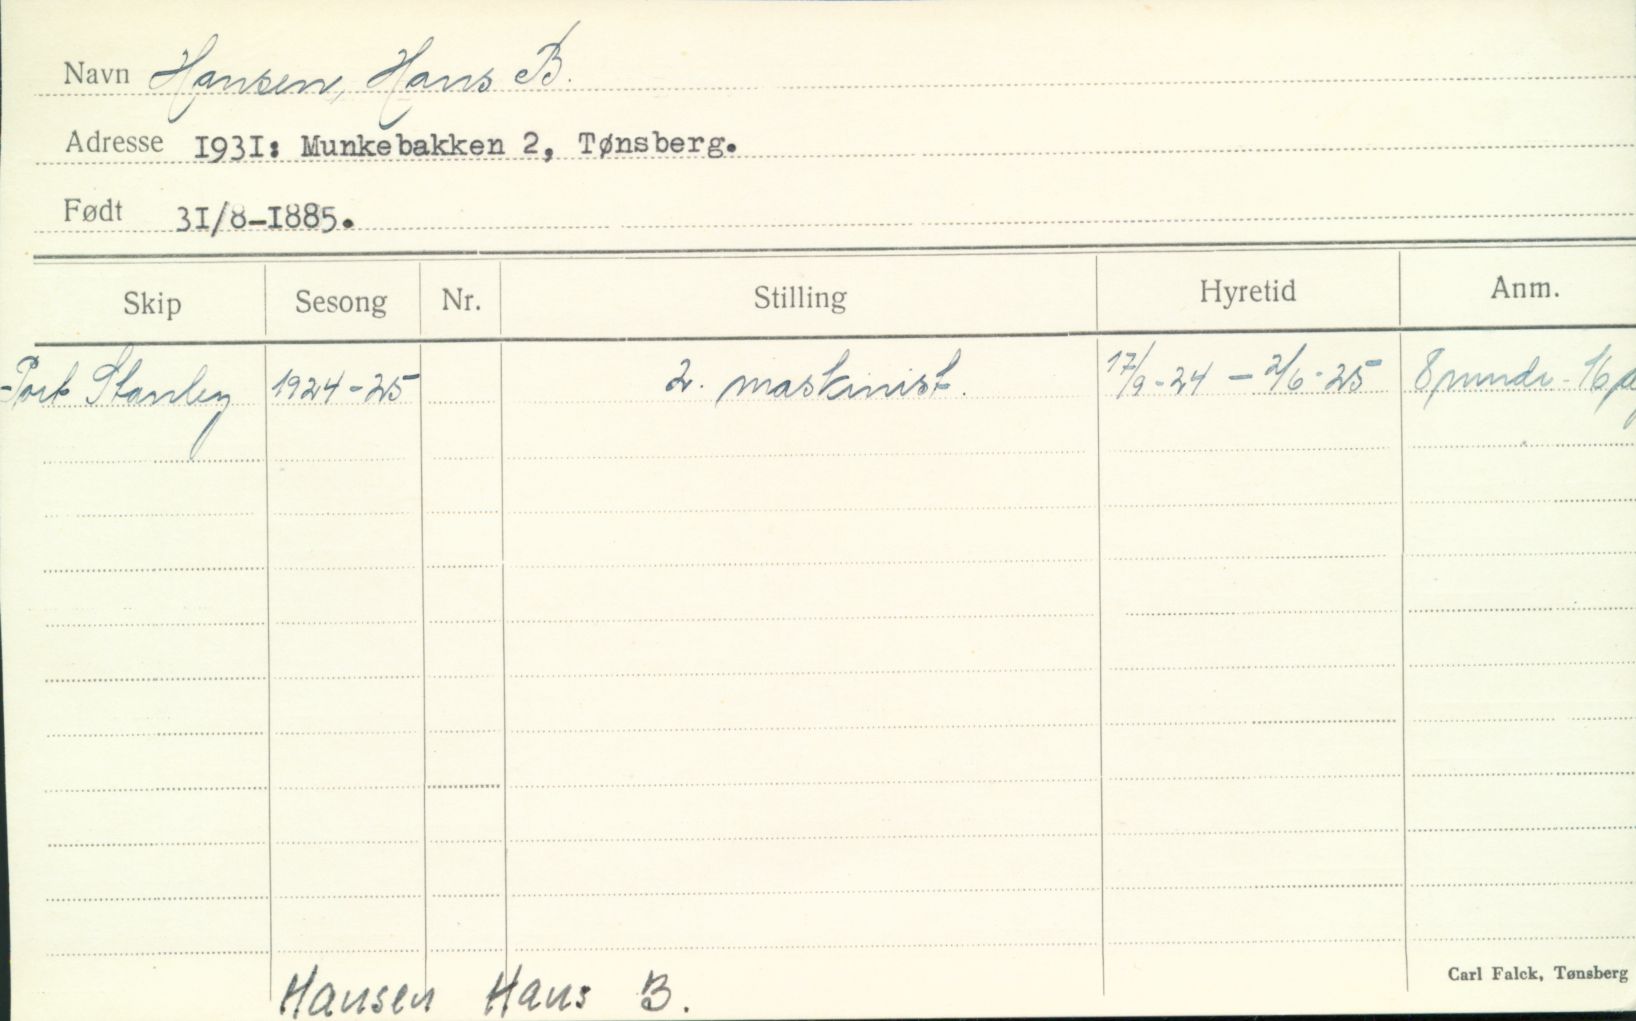 Navn Hansen, Hans B.
Adresse 1931: Munkebakken 2, Tønsberg.
Født 31/8-1885.
Skip Sesong Nr. Stilling Hyretid Anm.
Port Stanley 1924-25 2. maskinist. 17/9-24 - 2/6-25 8 mndr. 16
Carl Falck, Tønsberg
Hansen Hans B.